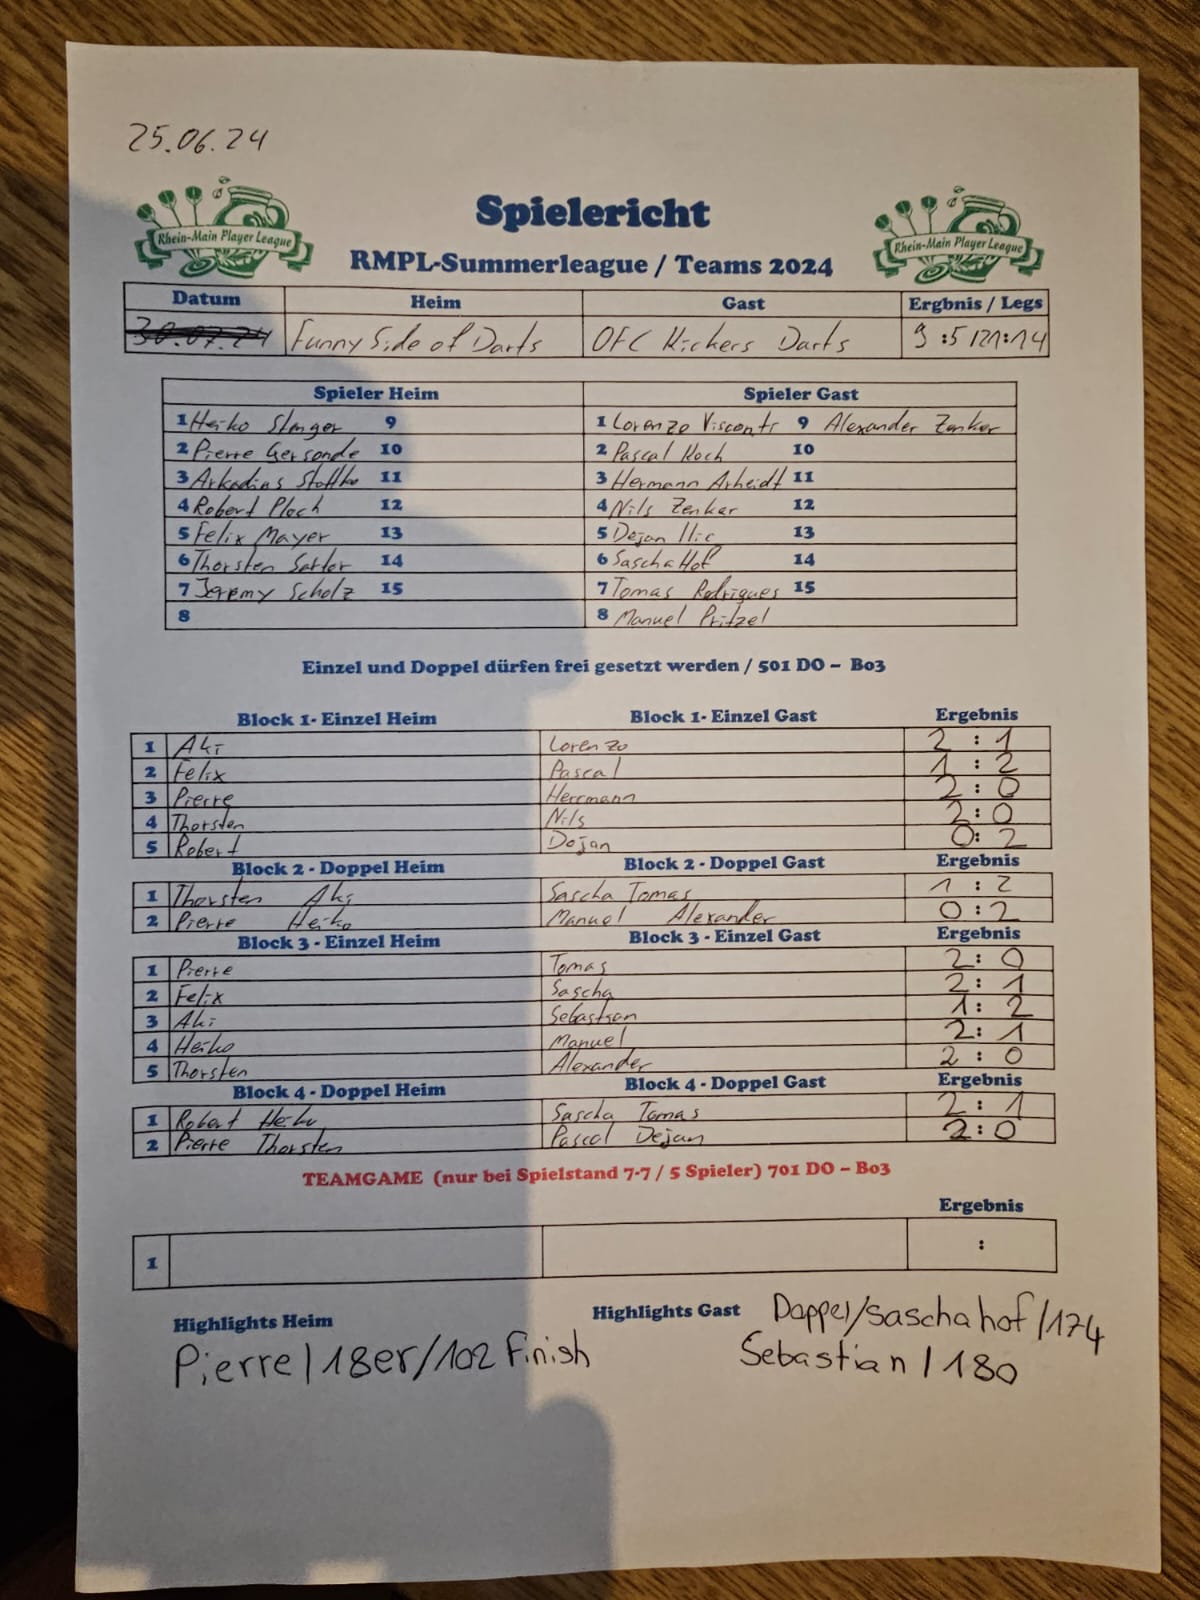 25.06.24
Rhein-Main Player League
Spielericht
Rhein-Main Player League
RMPL-Summerleague / Teams 2024
Datum Heim Gast Ergbnis / Legs
30.07.24 Funny Side of Darts OFC Kickers Darts 9 :5 /21:14
Spieler Heim Spieler Gast
1 Heiko Stenger 9 1 Lorenzo Visconti 9 Alexander Zenker
2 Pierre Gersonde 10 2 Pascal Koch 10
3 Arkadius 11 3 Hermann Arheidt 11
4 Robert Ploch 12 4 Nils Zenker 12
5 Felix Mayer 13 5 Dejan Ilic 13
6 Thorsten Sattler 14 6 Sascha Hof 14
7 Jeremy Scholz 15 7 Tomas Rodrigues 15
8 8 Manuel Pritzel
Einzel und Doppel dürfen frei gesetzt werden / 501 DO – Bo3
Block 1- Einzel Heim Block 1- Einzel Gast Ergebnis
1 Aki Lorenzo 2 : 1
2 Felix Pascal 1 : 2
3 Pierre Herrmann 2 : 0
4 Thorsten Nils 2 : 0
5 Robert Dejan 0 : 2
Block 2 - Doppel Heim Block 2 - Doppel Gast Ergebnis
1 Thorsten Aki Sascha Tomas 1 : 2
2 Pierre Heiko Manuel Alexander 0 : 2
Block 3 - Einzel Heim Block 3 - Einzel Gast Ergebnis
1 Pierre Tomas 2 : 0
2 Felix Sascha 2 : 1
3 Aki Sebastian 1 : 2
4 Heiko Manuel 2 : 1
5 Thorsten Alexander 2 : 0
Block 4 - Doppel Heim Block 4 - Doppel Gast Ergebnis
1 Robert Heiko Sascha Tomas 2 : 1
2 Pierre Thorsten Pascal Dejan 2 : 0
TEAMGAME (nur bei Spielstand 7-7 / 5 Spieler) 701 DO – Bo3
Ergebnis
1 :
Highlights Heim Highlights Gast Doppel/sascha hof/174
Pierre/18er/102 Finish Sebastian/180